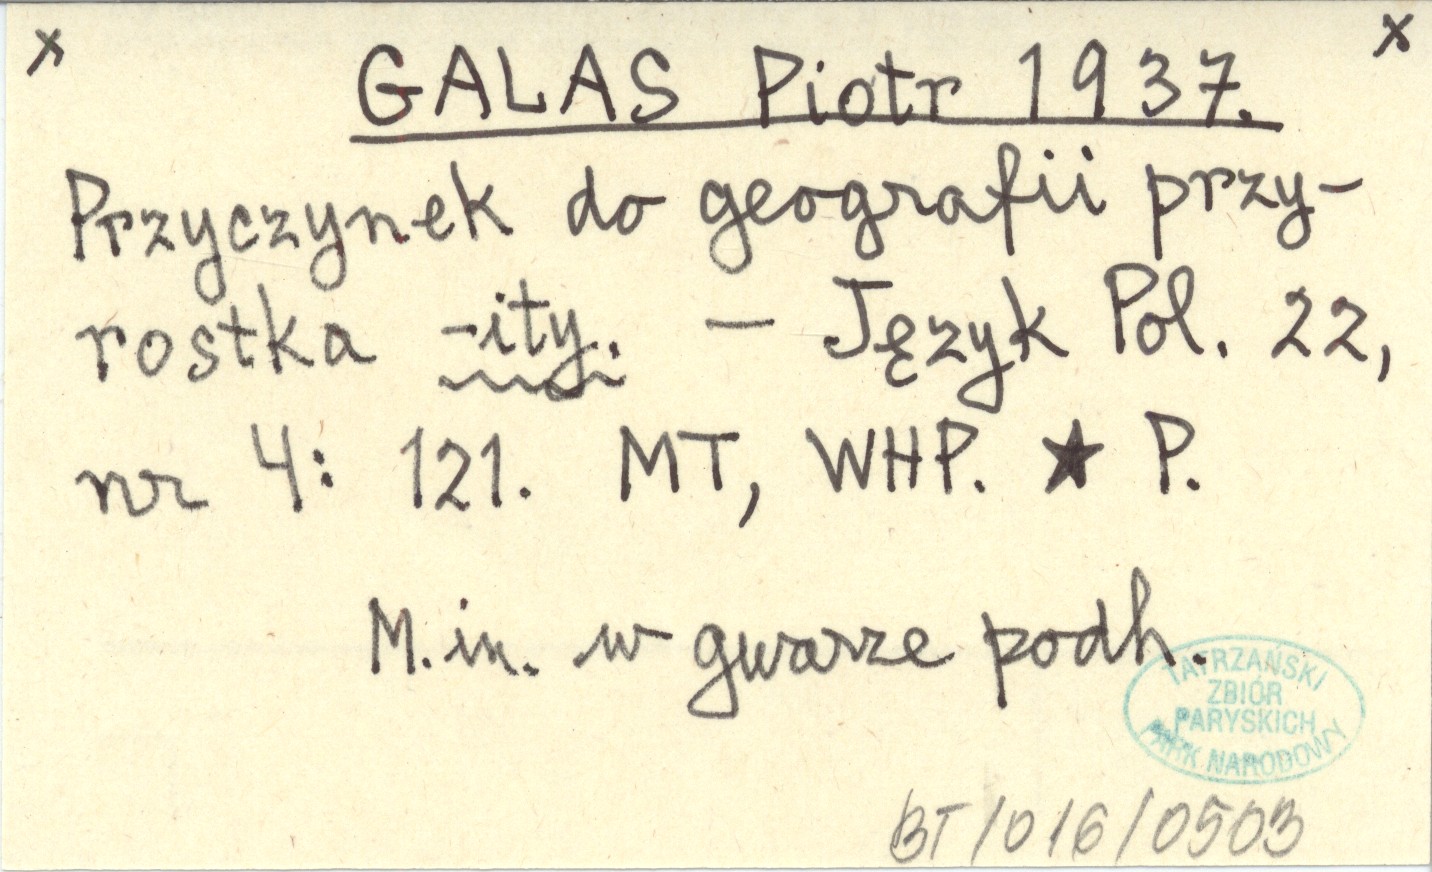 x x
GALAS Piotr 1937.
Przyczynek do geografii przy-
rostka -ity. — Język Pol. 22,
nr 4: 121. MT, WHP. ★ P.
M.in. w gwarze podh.
TATRZAŃSKI
ZBIÓR
PARYSKICH
PARK NARODOWY
BT/016/0503